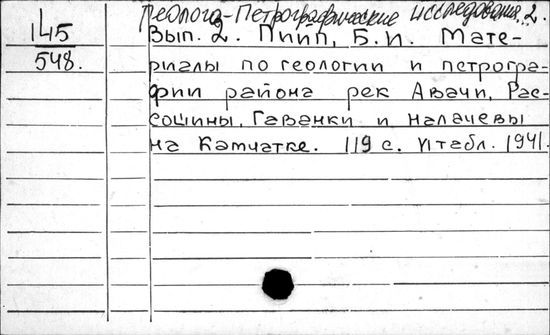 Геолого-Петрографические исследования. 2.
145
548.
Вып. 2. Пийп, Б.И. Мате-
риалы по геологии и петрогра-
фии района рек Авачи, Рас-
сошины, Гаванки и Налачевы
на Камчатке. 119 с. VI табл. 1941.